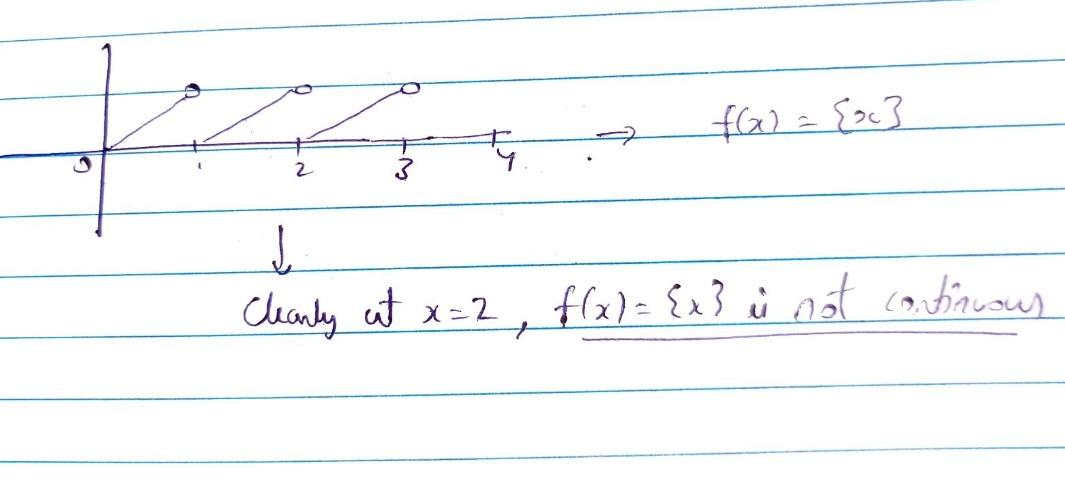 f(x) = {x}
0 1 2 3 4
Clearly at x=2, f(x)= {x} is not continuous